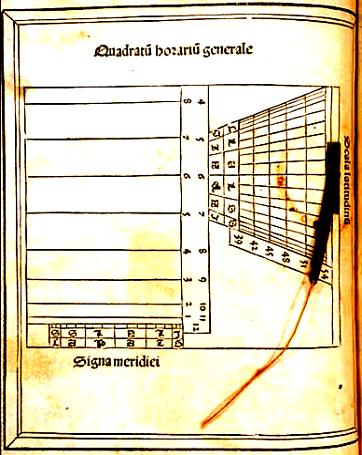 Quadratū horariū generale
Scala latitudinū
8 4
7 5
6 6
5 7
4 8
3 9
2 10
1 11
12
39 42 45 48 51 54
Signa meridiei